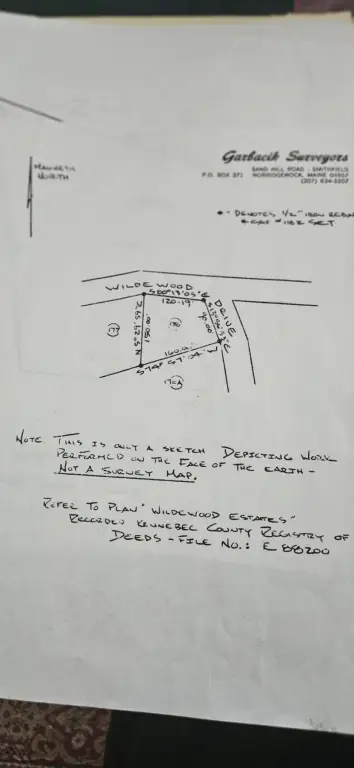 Garbacik Surveyors
SAND HILL ROAD - SMITHFIELD
P.O. BOX 571 NORRIDGEWOCK, MAINE 04957
(207) 634-3357
MAGNETIC
NORTH
• - DENOTES 1/2" IRON REBAR
& CAP # 1182 SET
WILDEWOOD
DRIVE
120.19'
90.00
150.00
160.0
S 74° 57' 04"
17A
NOTE: THIS IS ONLY A SKETCH DEPICTING WORK
PERFORMED ON THE FACE OF THE EARTH -
NOT A SURVEY MAP.
REFER TO PLAN "WILDEWOOD ESTATES"
RECORDED KENNEBEC COUNTY REGISTRY OF
DEEDS - FILE NO.: E 88200